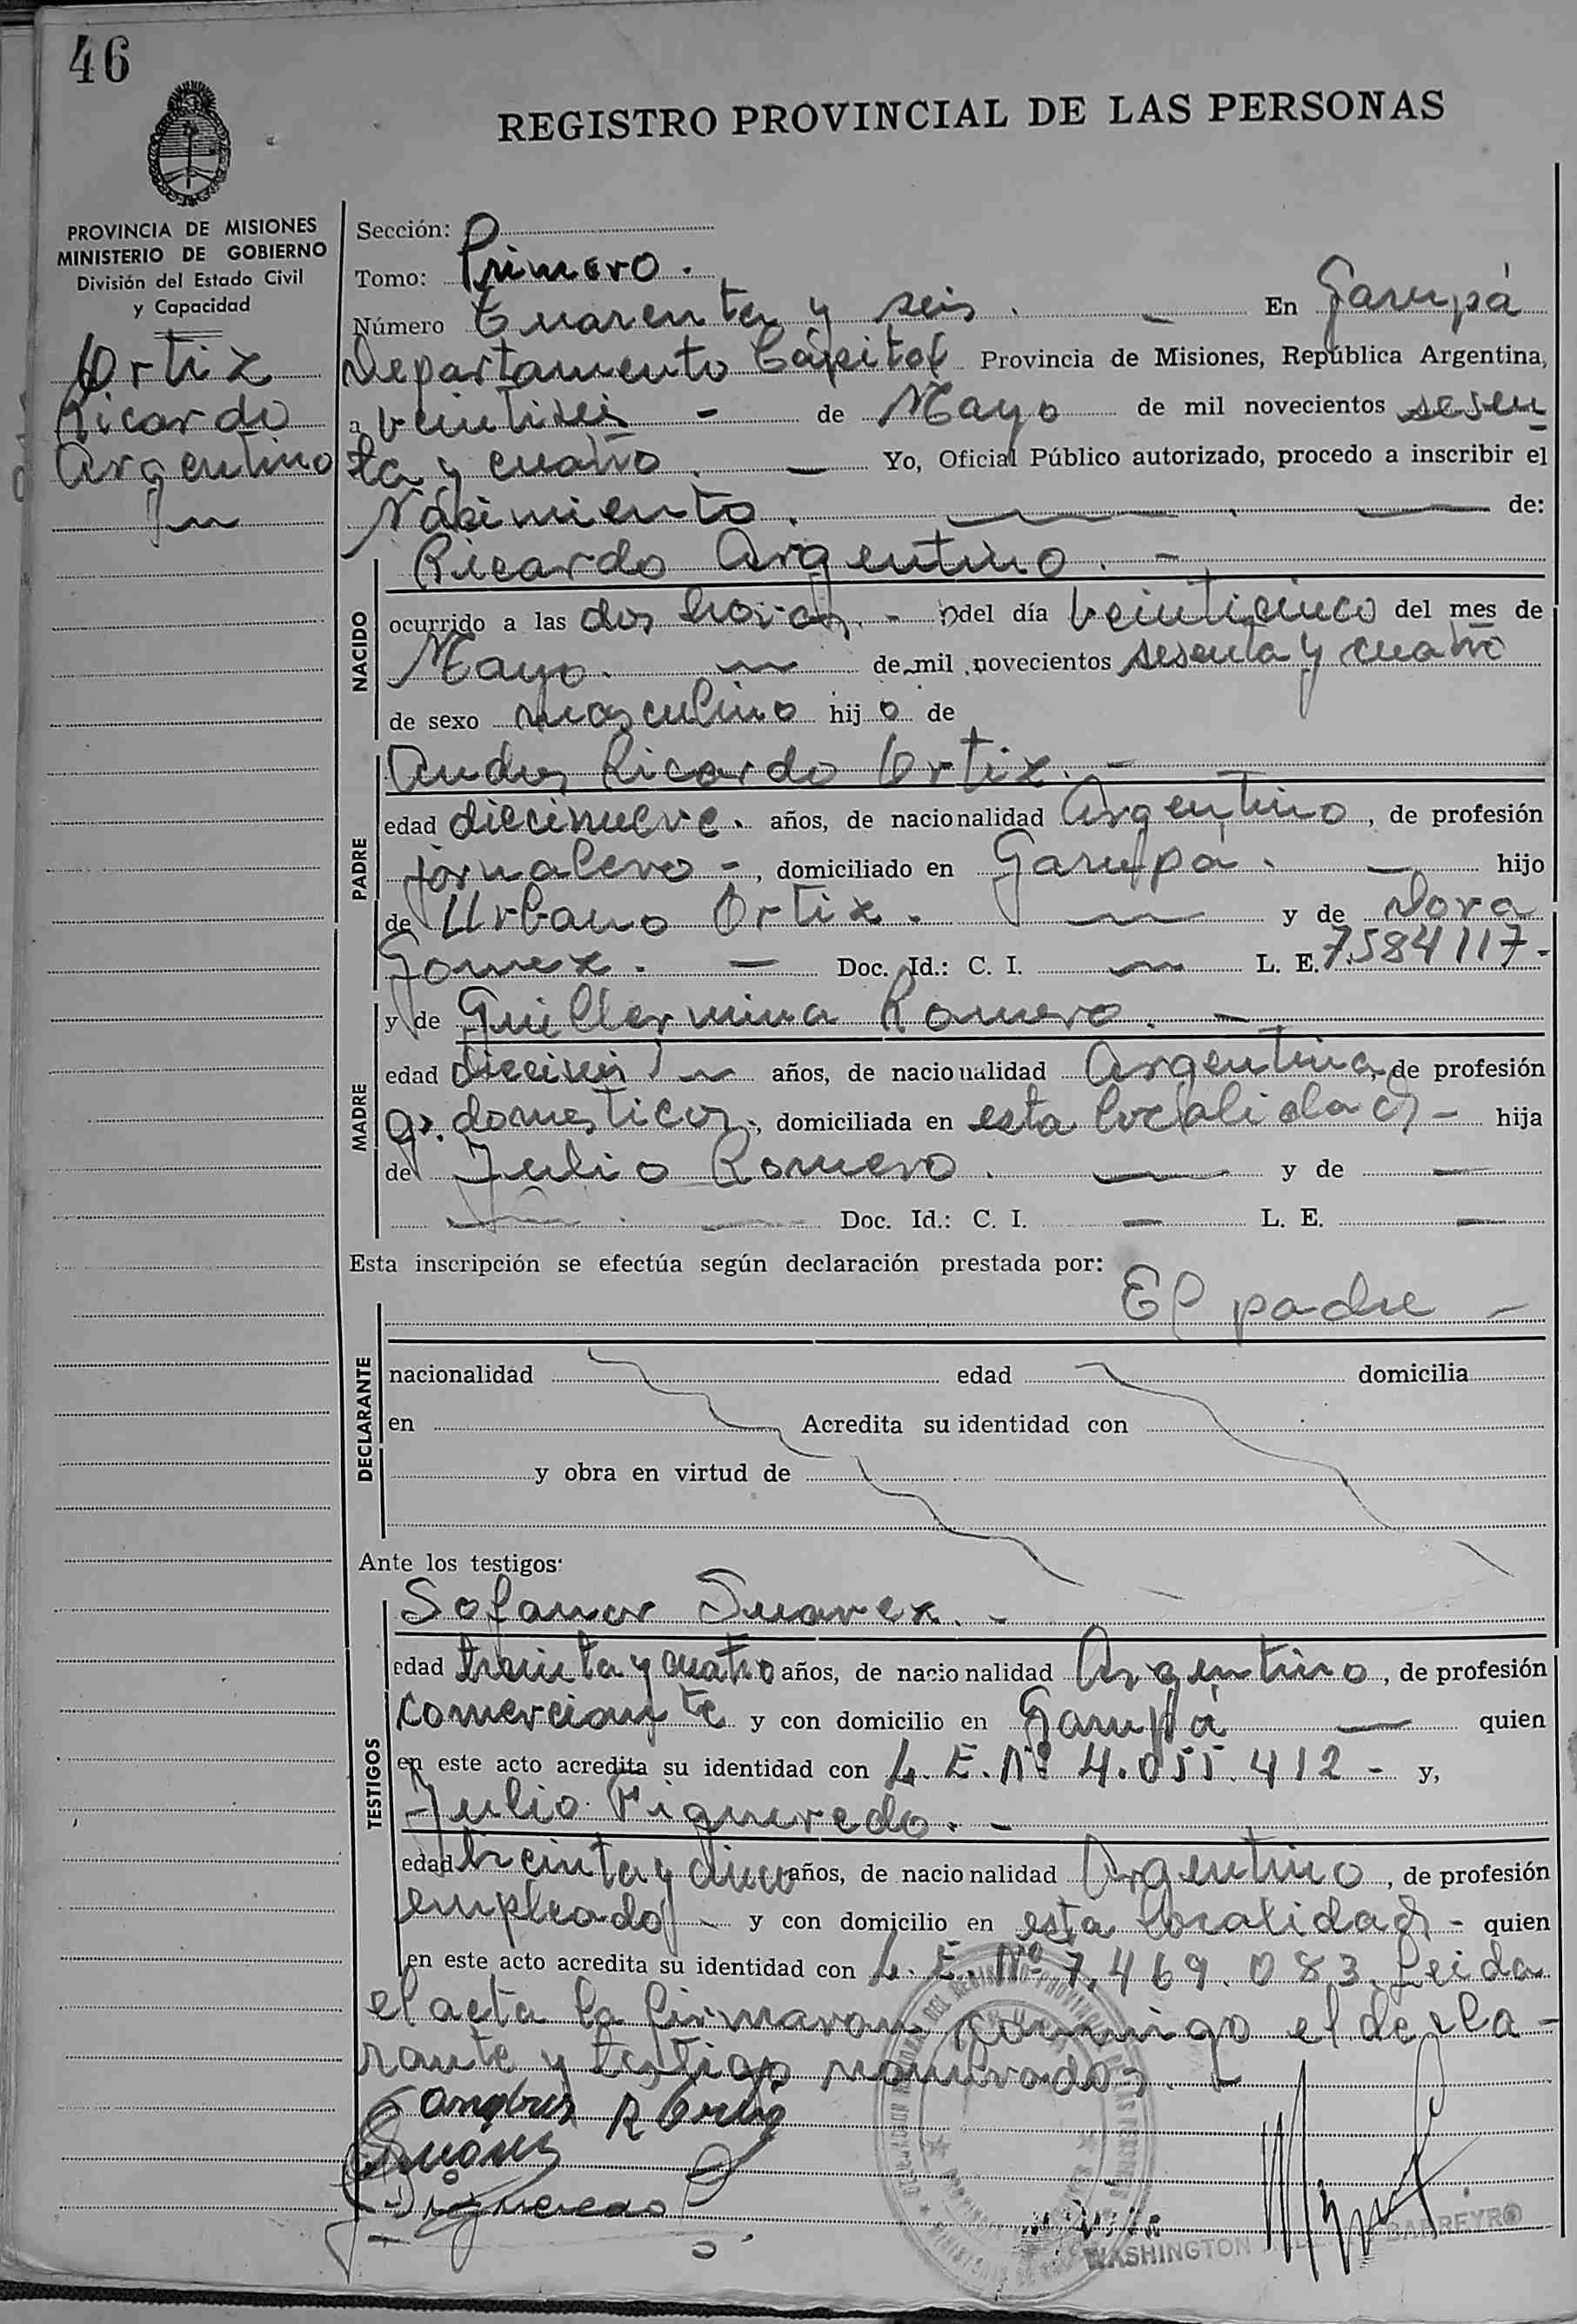 46
REGISTRO PROVINCIAL DE LAS PERSONAS
PROVINCIA DE MISIONES
MINISTERIO DE GOBIERNO
División del Estado Civil
y Capacidad
Ortiz
Ricardo
Argentino
Sección:
Tomo: Primero.
Número Cuarenta y seis. — En Garupá
Departamento Capital Provincia de Misiones, República Argentina,
a veintiseis - de Mayo de mil novecientos sesen
ta y cuatro. — Yo, Oficial Público autorizado, procedo a inscribir el
Nacimiento. — . — de:
NACIDO
Ricardo Argentino. -
ocurrido a las dos horas. - del día veinticinco del mes de
Mayo. — de mil novecientos sesenta y cuatro
de sexo masculino hijo de
PADRE
Andres Ricardo Ortiz. -
edad diecinueve. años, de nacionalidad Argentino, de profesión
jornalero -, domiciliado en Garupá. — hijo
de Urbano Ortiz. — y de Dora
Gomez. — Doc. Id.: C. I. — L. E. 7.584117-
MADRE
y de Guillermina Romero. -
edad dieciseis — años, de nacionalidad Argentina, de profesión
q. domesticos., domiciliada en esta localidad - hija
de Julio Romero. — y de —
— . — Doc. Id.: C. I. — L. E. —
Esta inscripción se efectúa según declaración prestada por:
El padre -
DECLARANTE
nacionalidad edad domicilia
en Acredita su identidad con
y obra en virtud de
Ante los testigos:
TESTIGOS
Solanor Suarez. -
edad treinta y cuatro años, de nacionalidad Argentino, de profesión
comerciante y con domicilio en Garupá — quien
en este acto acredita su identidad con L. E. Nº 4.055.412 - y,
Julio Figueredo. -
edad treinta y cinco años, de nacionalidad Argentino, de profesión
empleado - y con domicilio en esta localidad - quien
en este acto acredita su identidad con L. E. Nº 7.469.083. Leida
el acta la firmaron conmigo el decla-
rante y testigos nombrados. -
Andres R Ortiz
Suarez
Figueredo
WASHINGTON BARREYRO